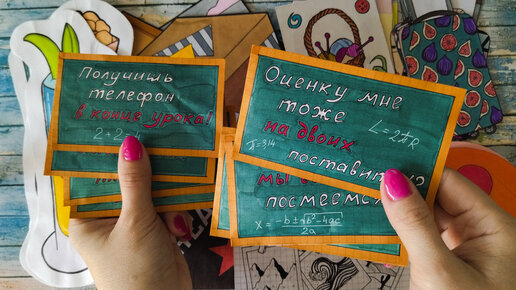 Получишь
телефон
в конце урока!
2+2=
Оценку мне
тоже
на двоих
поставите?
L=2πR
π=3,14
посмеемся
x = -b±√b²-4ac
2a